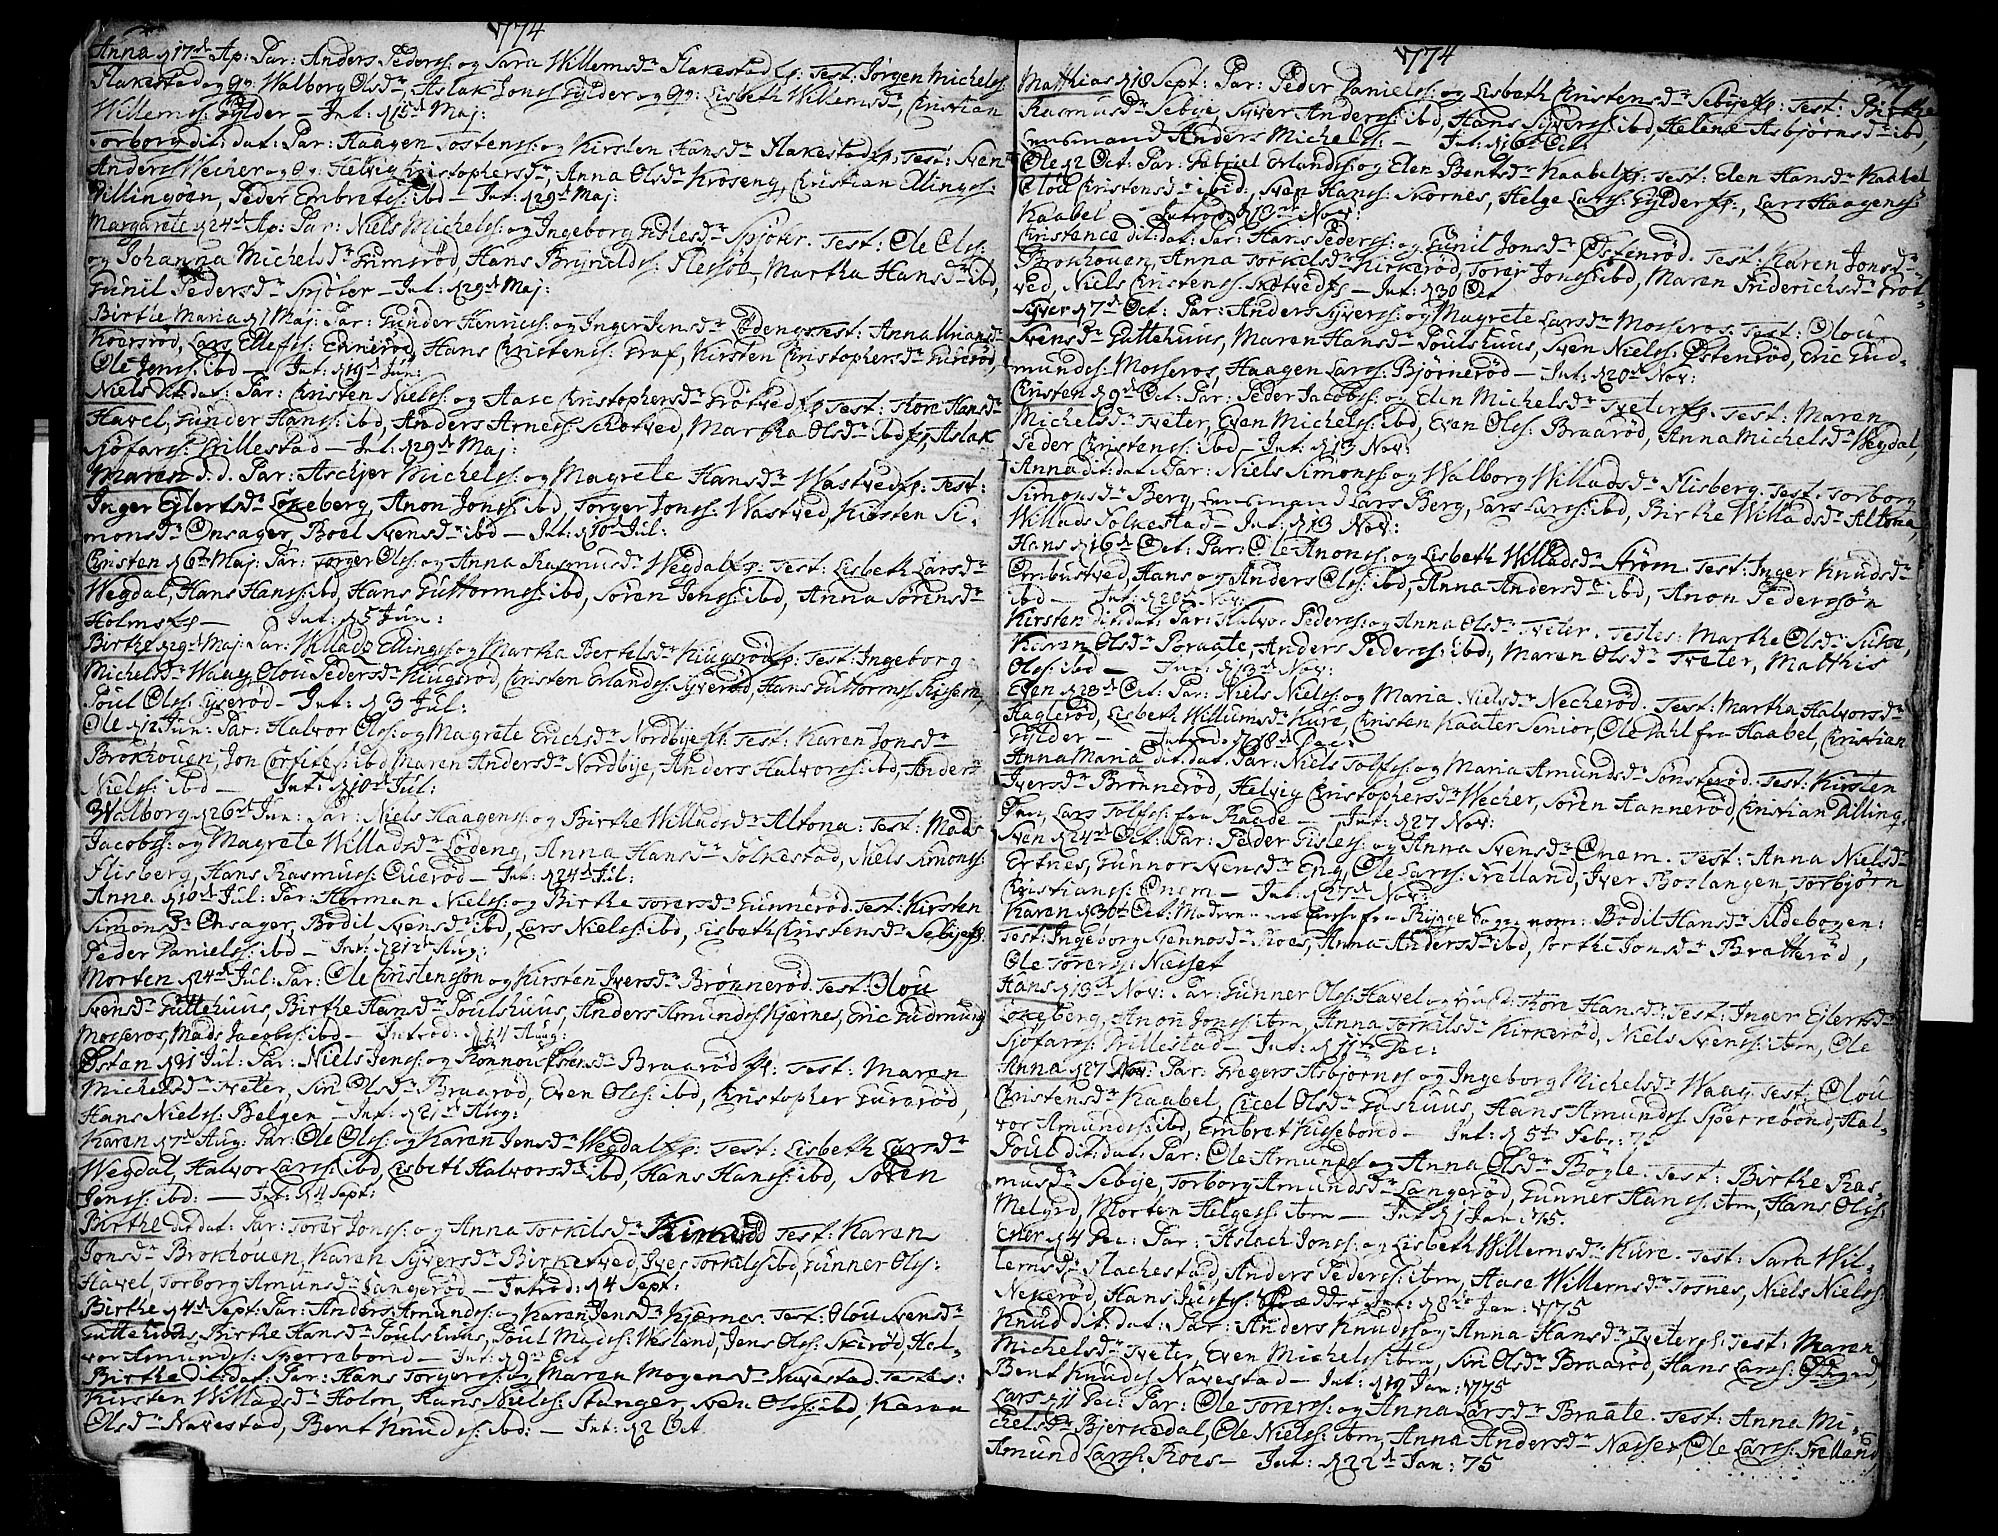 1774
Anna d 17d Ap: Par: Anders Pederss: og Sara Willemsdr Flakestad fp: Test: Jørgen Michelss:
Flakestad og qv: Walborg Olsdr, Aslak Jonss: Gylder og qv: Lisbeth Willemsdr, Christian
Willemss: Gylder – Int: d 15d Maj:
Torborg dit: dat: Par: Haagen Tostenss: og Kirsten Hansdr Flakestad fp: Test: Sven
Anderss Wecher og qv: Helvig Christophersdr, Anna Olsdr Kroseng, Christian Ellingss:
Dillingøen, Peder Embretss: ibd – Int: d 29d Maj:
Margarete d 24d Ap: Par: Niels Michelss: og Ingeborg Gudlesdr Spjøter. Test: Ole Olss:
og Johanna Michelsdr Grimsrød, Hans Brynildss: Flessøe, Martha Hansdr ibd,
Gunil Pedersdr Spjøter – Int: d 29d Maj:
Birthe Maria d 1 Maj: Par: Gunder Henricss: og Inger Jensdr Lødeng: Test: Anna Unansdr
Koersrød, Lars Ellefss: Ennerød, Hans Christenss: Graf, Kirsten Christophersdr Gurerød,
Ole Jenss: ibd – Int: d 19d Jun:
Niels dit: dat: Par: Christen Nielss: og Aase Christophersdr Grotved fp Test: Thore Hansdr
Havel, Gunder Hanss: ibd, Anders Arness: Skotved, Martha Olsdr ibd fp, Aslak
Sjøfarss: Willestad – Int: d 29d Maj:
Maren d. d. Par: Aschjer Michelss: og Magrete Hansdr Wastved fp: Test:
Inger Ejlertsdr Løkeberg, Anon Jonss: ibd, Torger Jonss: Wastved, Kirsten Si-
monsdr Onsager, Boel Svensdr ibd – Int: d 10d Jul:
Christen d 6d Maj: Par: Torger Olss: og Anna Rasmusdr Wegdal fp: Test: Lisbeth Larsdr
Wegdal, Hans Hanss: ibd, Hans Guttormss: ibd, Søren Jenss: ibd, Anna Sørensdr
Holms fp – Int: d 5 Jun:
Birthe d 29d Maj: Par: Willadz Ellingss: og Martha Bertelsdr Kiugsrød fp: Test: Ingeborg
Michelsdr Waag, Olou Pedersdr Kiugsrød, Christen Erlandss: Syverød, Hans Guttormss:
Poul Olss: Syverød – Int: d 3 Jul:
Ole d 12 Jun: Par: Halvor Olss: og Magrete Erichsdr Nordbye fp: Test: Karen Jonsdr
Brokhouen, Jon Corfitss: ibd, Maren Andersdr Nordbije, Anders Halvorss: ibd, Anders
Nielss: ibd – Int: d 10d Jul:
Walborg d 26d Jun: Par: Niels Haagenss: og Birthe Willadsdr Altona: Test: Mads
Jacobss: og Magrete Willadsdr Lødeng, Anna Hansdr Solkestad, Niels Simonss:
Flisberg, Hans Rasmuss: Querød – Int: d 24d Jul:
Anne d 10d Jul: Par: Herman Nielss: og Birthe Torersdr Gunnerød. Test: Kirsten
Simonsdr Onsager, Bodil Svensdr ibd, Lars Nielss: ibd, Lisbeth Christensdr Sebije fp:
Peder Danielss: ibd – Int: d 21d Aug:
Morten d 24d Jul: Par: Ole Christensson og Kirsten Iversdr Brønnerød. Test: Olou
Svensdr Guttehuus, Birthe Hansdr Poulshuus, Anders Amundss Kjærnes, Eric Gudmunss
Mosseros, Mads Jacobss: ibd – Introd: d 14 Aug:
Østen d 21 Jul: Par: Niels Jenss: og Braarød fp: Test: Maren
Michelsdr Tveter, Siri Olsdr Braarød, Even Olss: ibd, Christopher Gurarød,
Hans Nielss: Belgen – Int: d 21d Aug:
Karen d 7d Aug: Par: Ole Olss: og Karen Jensdr Wegdal fp: Test: Lisbeth Larsdr
Wegdal, Halvor Larss: ibd, Lisbeth Halvorsdr ibd, Hans Hanss: ibd, Søren
Jenss: ibd: – Int: d 4 Sept:
Birthe dit: dat: Par: Torer Jonss: og Anna Torkilsdr Kirkerød Test: Karen
Jonsdr Brokhouen, Karen Syversdr Birketved, Iver Torkilss ibd, Gunner Olss:
Havel, Torborg Amunsdr Langerød – Introd: d 4 Sept:
Birthe d 4d Sept: Par: Anders Amundss: og Karen Jensdr Kjærnes. Test: Olou Svensdr
Guttehuus, Birthe Hansdr Poulshuus, Poul Madss: Vesland, Jens Olss: Skerød, Hal-
vor Amundss: Sperrebond – Int: d 9d Oct
Birthe dit: dat: Par: Hans Torgerss: og Maren Mogensdr Navestad. Testes:
Kirsten Willadsdr Holm, Hans Nielss: Stanger, Sven Olss: ibd, Karen
Olsdr Navestad, Bent Knudss: ibd: – Int: d 2 Oct
1774
Matthias d 18 Sept: Par: Peder Danielss: og Lisbeth Christensdr Sebije fp: Test: Birthe
Rasmusdr Sebije, Syver Anderss: ibd, Hans Syverss: ibd, Helene Asbjørnsdr ibd,
Lensmand Anders Michelss: – Int: d 16d Oct:
Ole d 2 Oct: Par: Gabriel Erlandss: og Elen Bentsdr Kaabel fp: Test: Elen Hansdr Kaabel
Olou Christensdr ibid, Sven Hanss: Skornes, Helge Larss: Gylder fp:, Lars Haagenss:
Kaabel – Introd: d 13d Nov:
Christence dit: dat: Par: Hans Pederss: og Gunil Jonsdr Østenrød. Test: Karen Jonsdr
Brokhouen, Anna Torkilsdr Kirkerød, Torer Jonss: ibd, Maren Friderichsdr Grot-
ved, Niels Christenss: Skotved fs – Int: d 30 Oct
Syver d 7d Oct: Par: Anders Syverss: og Magrete Larsdr Mosseros. Test: Olou
Svensdr Guttehuus, Maren Hansdr Poulshuus, Sven Nielss: Østenrød, Eric Gud-
mundss: Mosseros, Haagen Larss: Bjørnerød – Int: d 20d Nov:
Christen d 9d Oct: Par: Peder Jacobss: og Elen Michelsdr Tveter fp. Test: Maren
Michelsdr Tveter, Even Michelss: ibd, Even Olss: Braarød, Anna Michelsdr Wegdal,
Peder Christenss: ibd – Int: d 13 Nov:
Anna dit: dat: Par: Niels Simonss: og Walborg Willadsdr Flisberg. Test: Torborg
Simonsdr Berg, Lensmand Lars Berg, Lars Larss: ibd, Birthe Willadsdr Altona,
Willads Solkestad – Int: d 13 Nov:
Hans d 16d Oct: Par: Ole Anonss: og Lisbeth Willadsdr Strøm. Test: Inger Knudsdr
Ombustved, Hans og Anders Olss: ibd, Anna Andersdr ibd, Anon Pederssøn
ibd – Int: d 20d Nov:
Kirsten dit: dat: Par: Halvor Pederss: og Anna Olsdr Tveter. Testes: Marthe Olsdr
Karen Olsdr Braate, Anders Pederss: ibd, Maren Olsdr Tveter, Matthis
Olss: ibd – Int: d 13d Nov:
Even d 23d Oct: Par: Niels Nielss: og Maria Nielsdr Neckerød. Test: Martha Halvorsdr
Haglerød, Lisbeth Willumsdr Kure, Christen Kaater Senior, Ole Dahl fra Haabel, Christian
Gylder – Introd: d 18d Dec:
Anna Maria dit: dat: Par: Niels Tolfss: og Maria Amundsdr Sønsterød. Test: Kirsten
Iversdr Brønnerød, Helvig Christophersdr Wecher, Søren Hannerød, Christian Dilling-
Øen, Lars Tolfss: fra Raade – Int: d 27 Nov:
Sven d 24d Oct: Par: Peder Gisless: og Anna Svensdr Onem. Test: Anna Nielsdr
Ertnes, Gunnor Svensdr Eng, Ole Larss: Trelland, Iver Boslangen, Torbjørn
Christianss: Onem – Int: d 27d Nov:
Karen d 30d Oct: Moderen fra Rygge Sogn, nom: Bodil Hansdr Aldebogen:
Test: Ingeborg Roes, Anna Andersdr ibd, Dorthe Jonsdr Bratterød,
Ole Torerss: Næsset
Hans d 13d Nov: Par: Gunner Olss: Havel og Thore Hansdr: Test: Inger Ejlertsdr
Løkeberg, Anon Jonss: ibm, Anna Torkilsdr Kirkerød, Niels Svenss: ibm, Ole
Sjøfarss: Willestad – Int: d 11te Dec:
Anna d 27 Nov: Par: Gregers Asbjørnss: og Ingeborg Michelsdr Waag. Test: Olou
Christensdr Kaabel, Cicel Olsdr Gashuus, Hans Amundss Sperrebond, Hal-
vor Amundss: ibd, Embret Kiggebond – Int: d 5te Febr: 75
Poul dit: dat: Par: Ole Amundss og Anna Olsdr Bøgle. Test: Birthe Ras-
musdr Sebije, Torborg Amundsdr Langerød, Gunner Hanss: ibm, Hans Olss:
Melgrd, Morten Helgess: ibm – Int d 1 Jan: 75.
Ester d 4 Dec: Par: Aslach Jonss: og Lisbeth Willemsdr Kure. Test: Sara Wil-
lemsdr Flachestad, Anders Pederss: ibm, Aase Willemsdr Tosnes, Niels Nielss:
Nekerød, Hans Int: d 8de Jan: 1775
Knud dit: dat: Par: Anders Knudss og Anna Hansdr Tveter fp: Test: Maren
Michelsdr Tveter, Even Michelss: ibm, Siri Olsdr Braarød, Hans Larss: Ødegrd,
Bent Knudss Navestad – Int: d 19 Jan: 1775
Lars d 11 Dec: Par: Ole Torerss: og Anna Larsdr Braate. Test: Anna Mi-
chelsdr Bjørkedal, Ole Nielss: ibm, Anna Andersdr Næsset, Ole Larss: Trelland,
Amund Larss: Roes – Int: d 22d Jan: 75
6